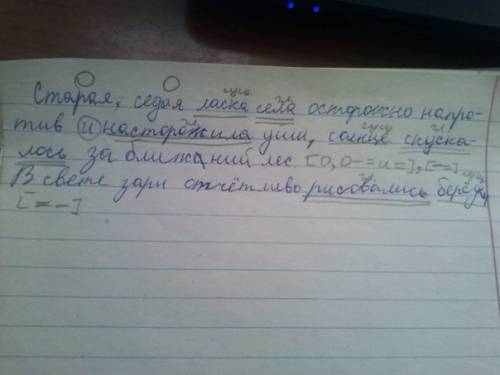 Старая, седая ласка села осторожно напро-
тив и насторожила уши, солнце спуска-
лось за ближний лес [О, О-=и=], [-=]
В свете зари отчётливо рисовались берёзы
[=-]